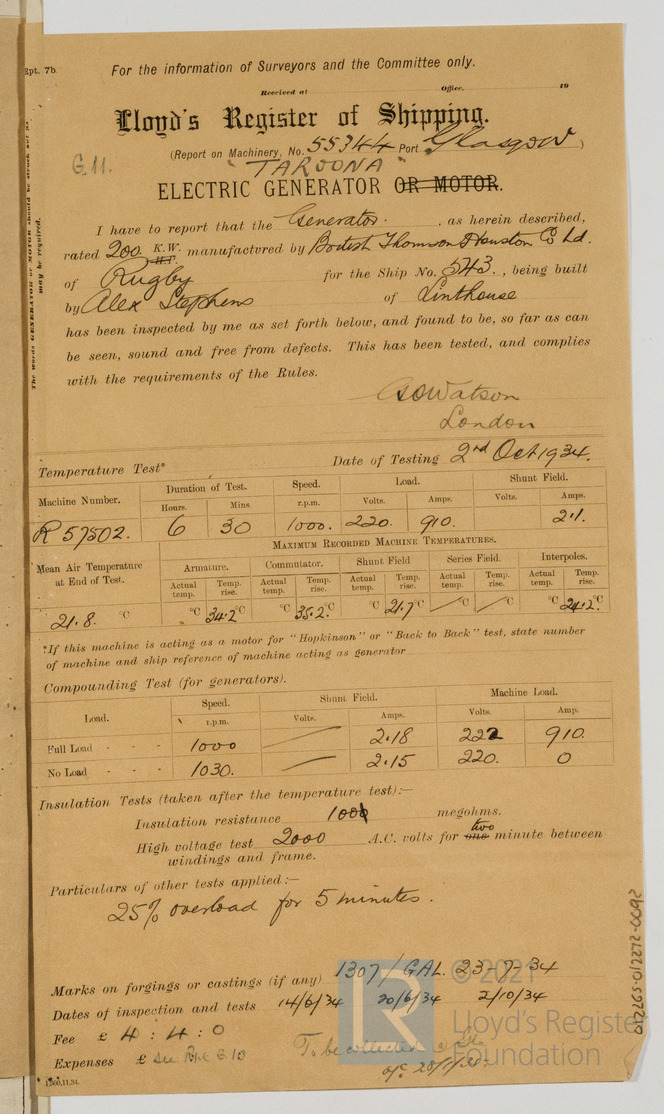 Rpt. 7b.
For the information of Surveyors and the Committee only.
Received at Office. 19
Lloyd's Register of Shipping.
(Report on Machinery, No. 55344 Port Glasgow)
G.11.
"TAROONA"
ELECTRIC GENERATOR OR MOTOR.
I have to report that the Generator. , as herein described,
rated 200 K.W. H.P. manufactured by British Thomson Houston Co Ld.
of Rugby for the Ship No. 543. , being built
by Alex Stephens of Linthouse
has been inspected by me as set forth below, and found to be, so far as can
be seen, sound and free from defects. This has been tested, and complies
with the requirements of the Rules.
The words GENERATOR or MOTOR should be struck out as
may be required.
Watson
London
Temperature Test* Date of Testing 2nd Oct 1934.
Machine Number. Duration of Test. Speed. Load. Shunt Field.
Hours. Mins r.p.m. Volts. Amps. Volts. Amps.
R 57502. 6 30 1000. 220. 910. 2.1.
Mean Air Temperature at End of Test. MAXIMUM RECORDED MACHINE TEMPERATURES.
Armature. Commutator. Shunt Field Series Field. Interpoles.
Actual temp. Temp. rise. Actual temp. Temp. rise. Actual temp. Temp. rise. Actual temp. Temp. rise. Actual temp. Temp. rise.
21.8. °C °C 34.2 °C °C 35.2 °C °C 21.7 °C °C °C °C 24.2 °C
*If this machine is acting as a motor for "Hopkinson" or "Back to Back" test, state number
of machine and ship reference of machine acting as generator
Compounding Test (for generators).
Load. Speed. Shunt Field. Machine Load.
r.p.m. Volts. Amps. Volts. Amp.
Full Load - - - 1000 2.18 222 910.
No Load - - - 1030. 2.15 220. 0
Insulation Tests (taken after the temperature test):—
Insulation resistance 100 megohms.
High voltage test 2000 A.C. volts for one two minute between
windings and frame.
Particulars of other tests applied:—
25% overload for 5 minutes.
Marks on forgings or castings (if any) 1307/GAL. 23-7-34
Dates of inspection and tests 14/6/34 20/6/34 2/10/34
Fee £ 4 : 4 : 0
Expenses £ see Rpt 6.10 To be collected
1,500,11,34.
© 2021
Lloyd's Register
Foundation
LR
012265-012272-0092